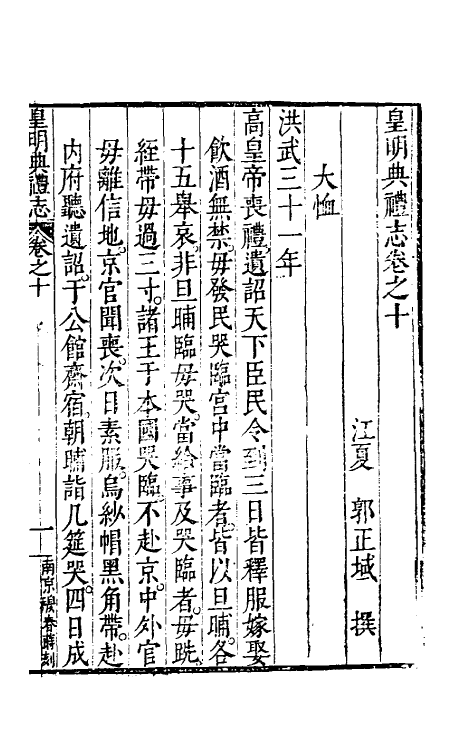 皇明典禮志卷之十
江夏 郭正域 撰
大恤
洪武三十一年
高皇帝喪禮遺詔天下臣民令到三日皆釋服嫁娶
飲酒無禁毋發民哭臨宮中當臨者皆以旦晡各
十五舉哀非旦晡臨毋哭當給事及哭臨者毋跣
絰帶毋過三寸諸王于本國哭臨不赴京中外官
毋離信地京官聞喪次日素服烏紗帽黑角帶赴
內府聽遺詔于公館齋宿朝晡詣几筵哭四日成
皇明典禮志 卷之十
一
南京 刻